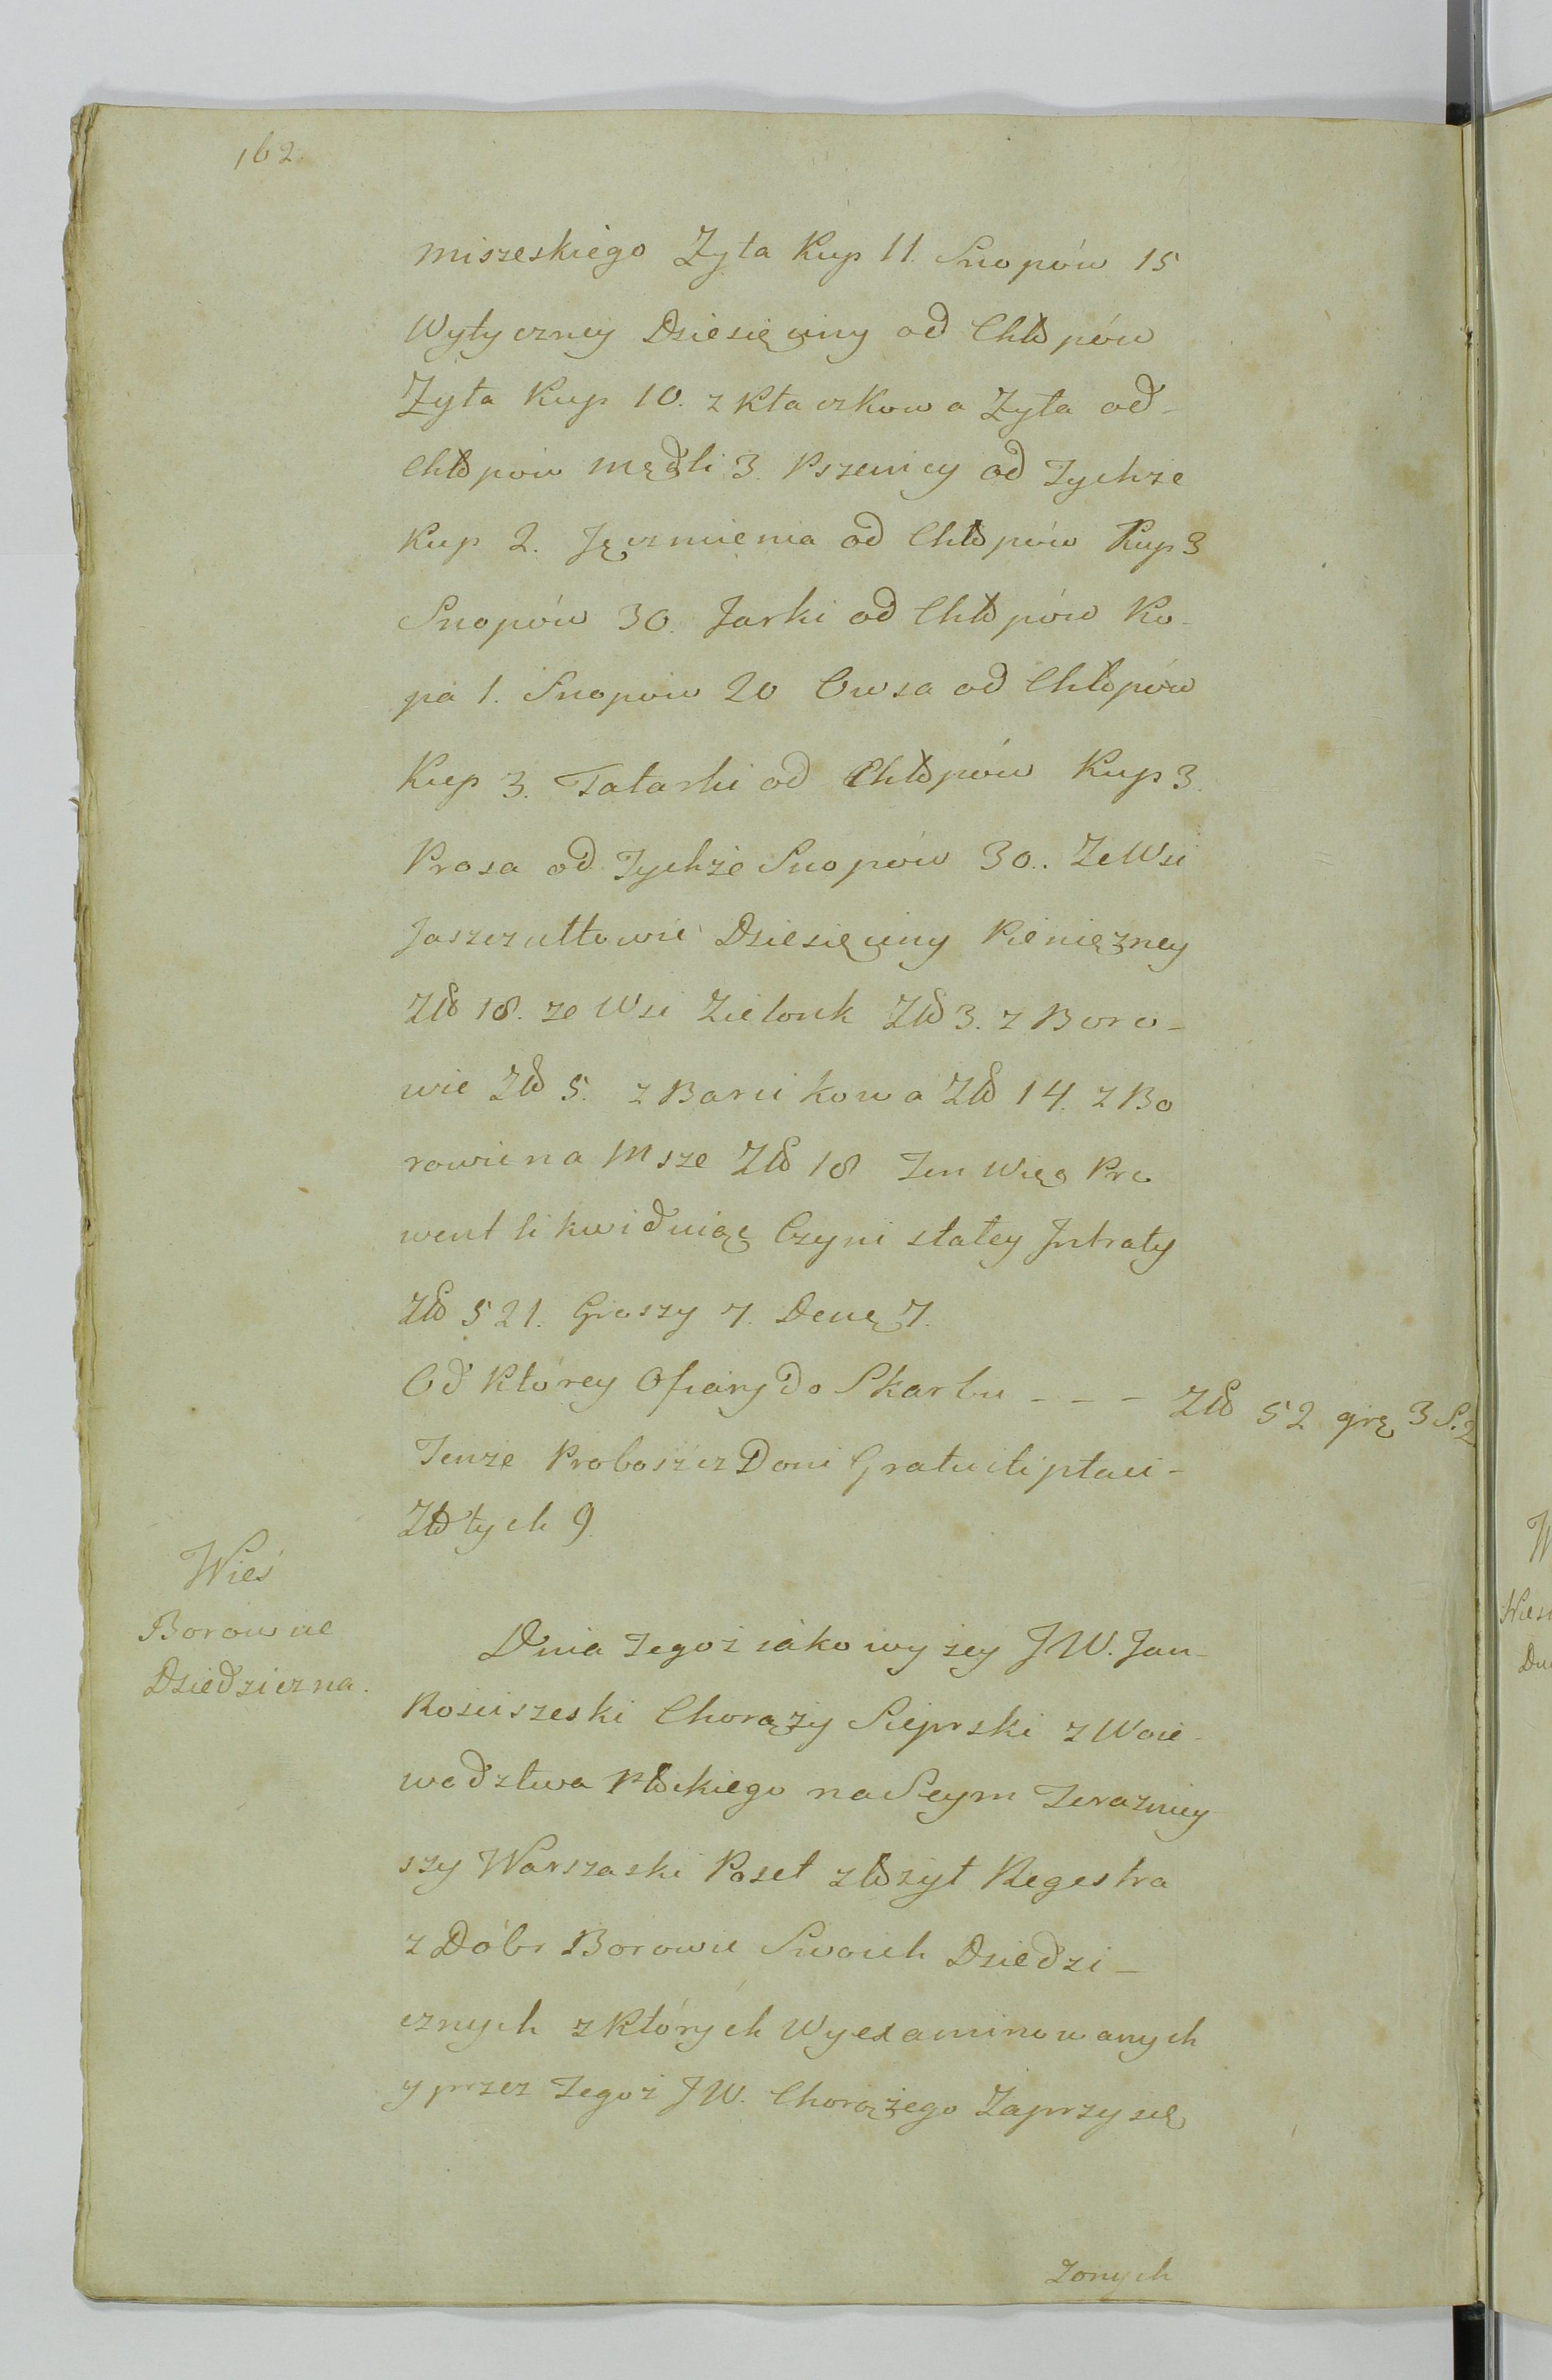 162
miszeskiego Zyta Kup 11. Snopów 15
Wytyczney Dziesięciny od Chłopów
Zyta Kup 10. z Kłaczkowa Zyta od-
Chłopów mędli 3. Pszenicy od Tychże
Kup 2. Jęczmienia od Chłopów Kup 3
Snopów 30. Jarki od Chłopów Ko-
pa 1. Snopów 20 Owsa od Chłopów
Kup 3. Tatarki od Chłopów Kup 3.
Prosa od Tychże Snopów 30.. Ze Wsi
Jaszczułtowic Dziesięciny Pieniężney
Zł 18. ze Wsi Zielonk Zł 3. z Boro-
wie Zł 5. z Barcikowa Zł 14. z Bo
rowic na Msze Zł 18 Ten Więc Pro
went likwiduiąc Czyni stałey Intraty
Zł 521. Groszy 7. Denę 7.
Od Którey Ofiary do Skarbu - - - Zł 52 grę 3 S. 2
Tenże Proboszcz Doni Gratuiti płaci-
Złotych 9.
Wieś
Borowice
Dziedziczna.
Dnia Tegoż iako wyżey JW. Jan-
Kościszeski Chorąży Sieprski z Woie-
wodztwa Płockiego na Seym Terazniey
szy Warszaski Poseł złożył Regestra
z Dóbr Borowic Swoich Dziedzi-
cznych z Których Wyexaminowanych
y przez Tegoż JW. Chorążego Zaprzysię
żonych